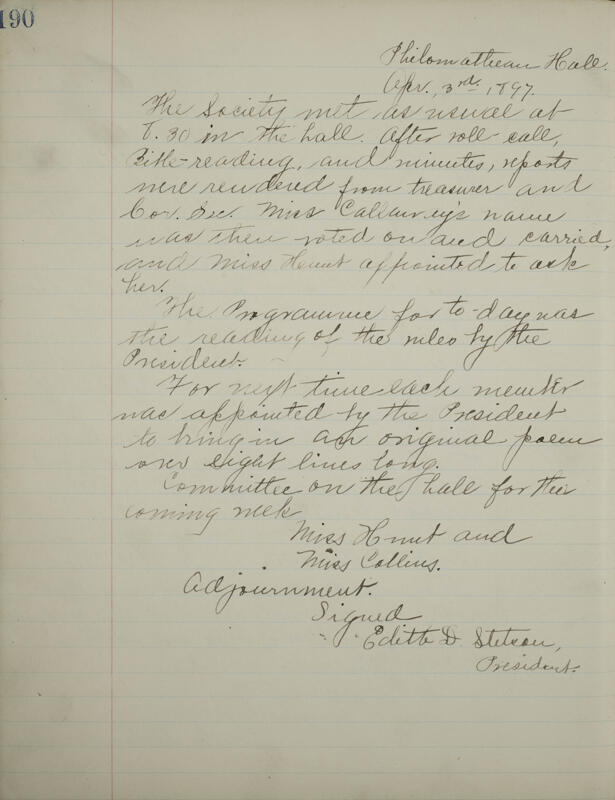 190
Philomathean Hall.
Apr. 3rd. 1897.
The Society met as usual at
8.30 in the hall. After roll-call,
Bible-reading, and minutes, reports
were rendered from treasurer and
Cor. Sec. Miss Callaway's name
was then voted on and carried,
and Miss Hunt appointed to ask
her.
The Programme for to-day was
the reading of the rules by the
President.
For next time each member
was appointed by the President
to bring in an original poem
over eight lines long.
Committee on the hall for the
coming week
Miss Hunt and
Miss Collins.
Adjournment.
Signed
Edith D. Stetson,
President.